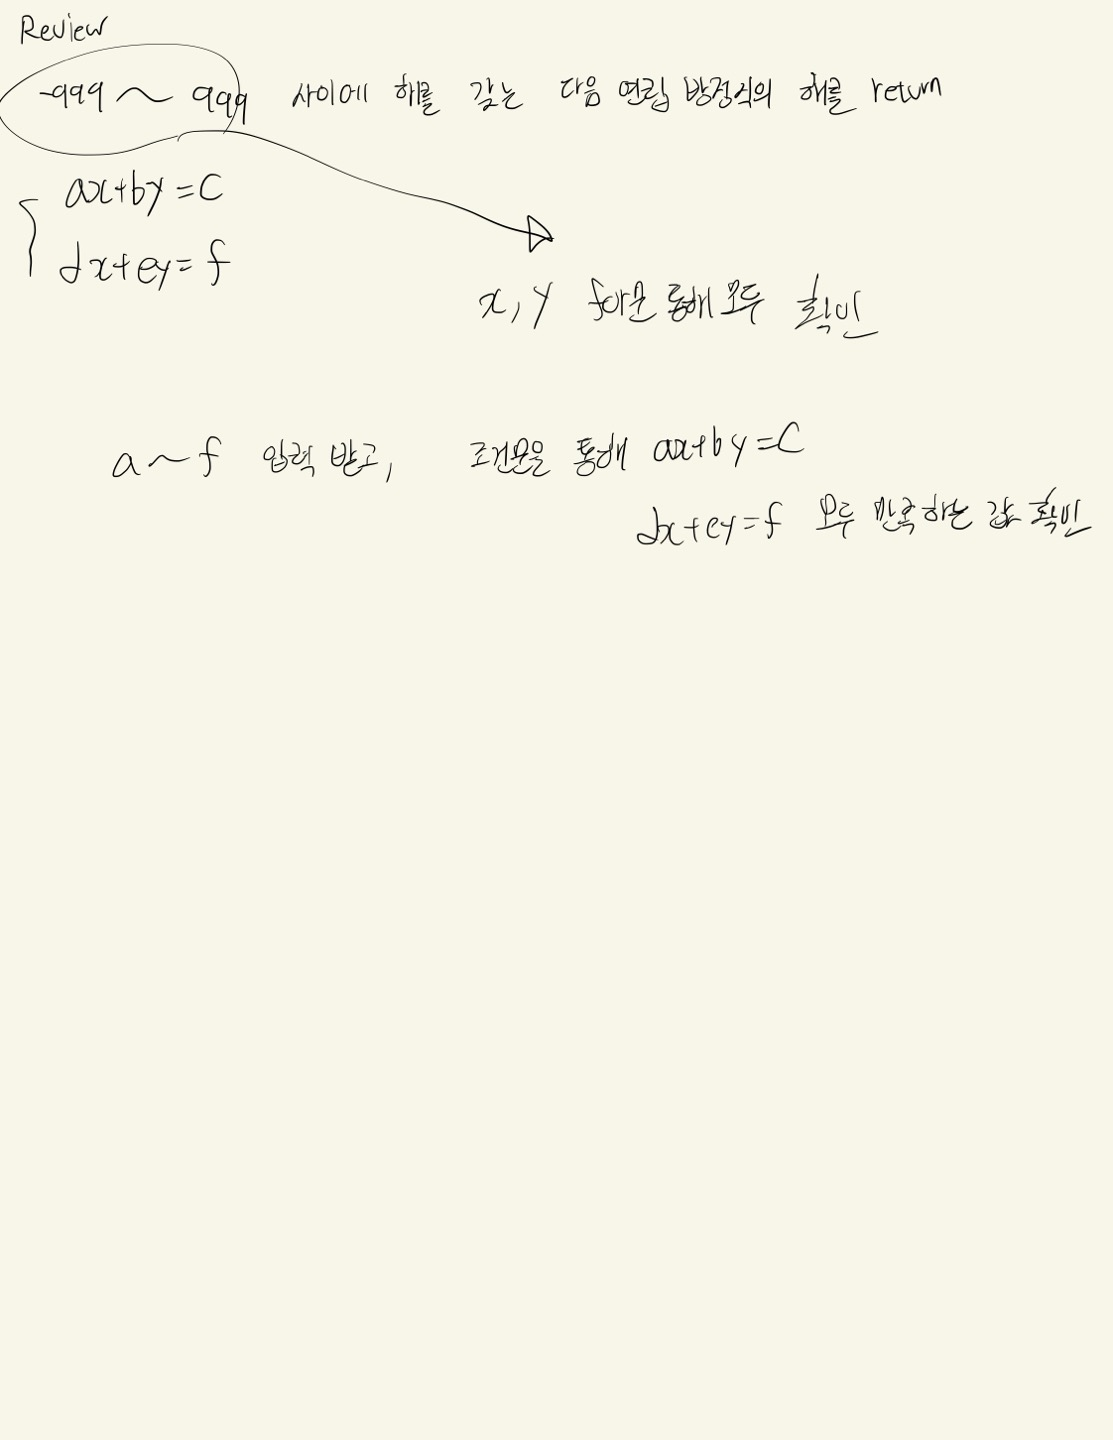 Review
-999 ~ 999 사이에 해를 갖는 다음 연립 방정식의 해를 return
ax+by=c
dx+ey=f
x, y for문 통해 모두 확인
a~f 입력 받고, 조건문을 통해 ax+by=c
dx+ey=f 모두 만족하는 값 확인